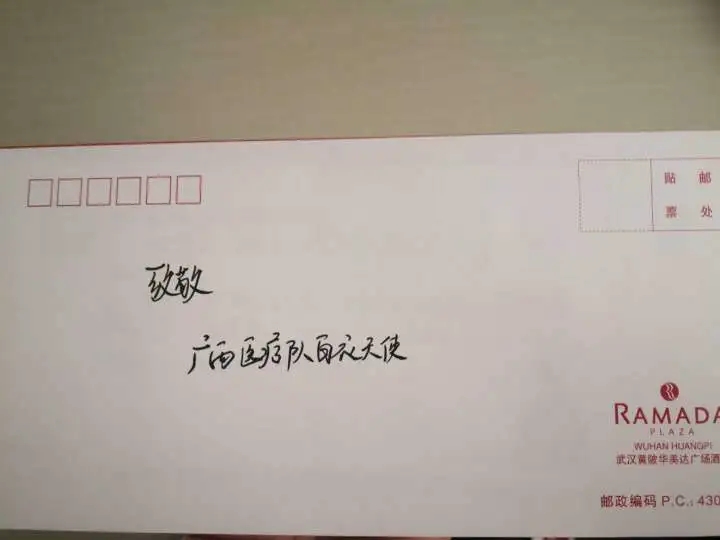 贴 邮
票 处
致敬
广西医疗队白衣天使
RAMADA
PLAZA
WUHAN HUANGPI
武汉黄陂华美达广场酒
邮政编码 P.C.: 430